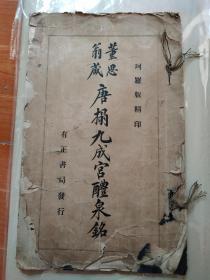 珂羅版精印
董思翁藏
唐搨九成宮醴泉銘
有正書局發行